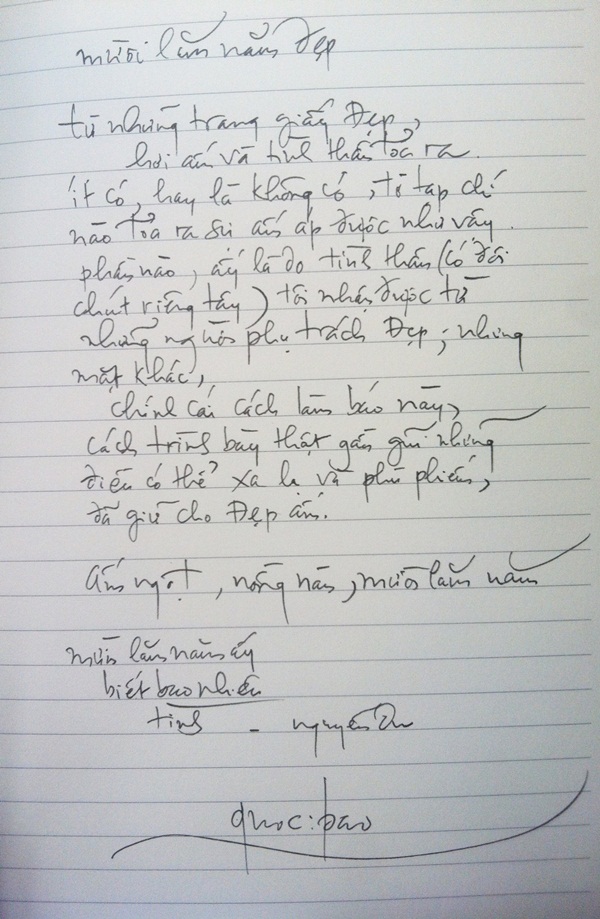 mười lăm năm đẹp
từ những trang giấy Đẹp,
hơi ấm và tinh thần tỏa ra.
ít có, hay là không có, tờ tạp chí
nào tỏa ra sự ấm áp được như vậy.
phần nào, ấy là do tinh thần (có đôi
chút riêng tây) tôi nhận được từ
những người phụ trách Đẹp; nhưng
mặt khác,
chính cái cách làm báo này,
cách trình bày thật gần gũi những
điều có thể xa lạ và phù phiếm,
đã giữ cho Đẹp ấm.
ấm ngọt, nồng nàn, mười lăm năm
mười lăm năm ấy
biết bao nhiêu
tình - nguyễn du
quoc:bao